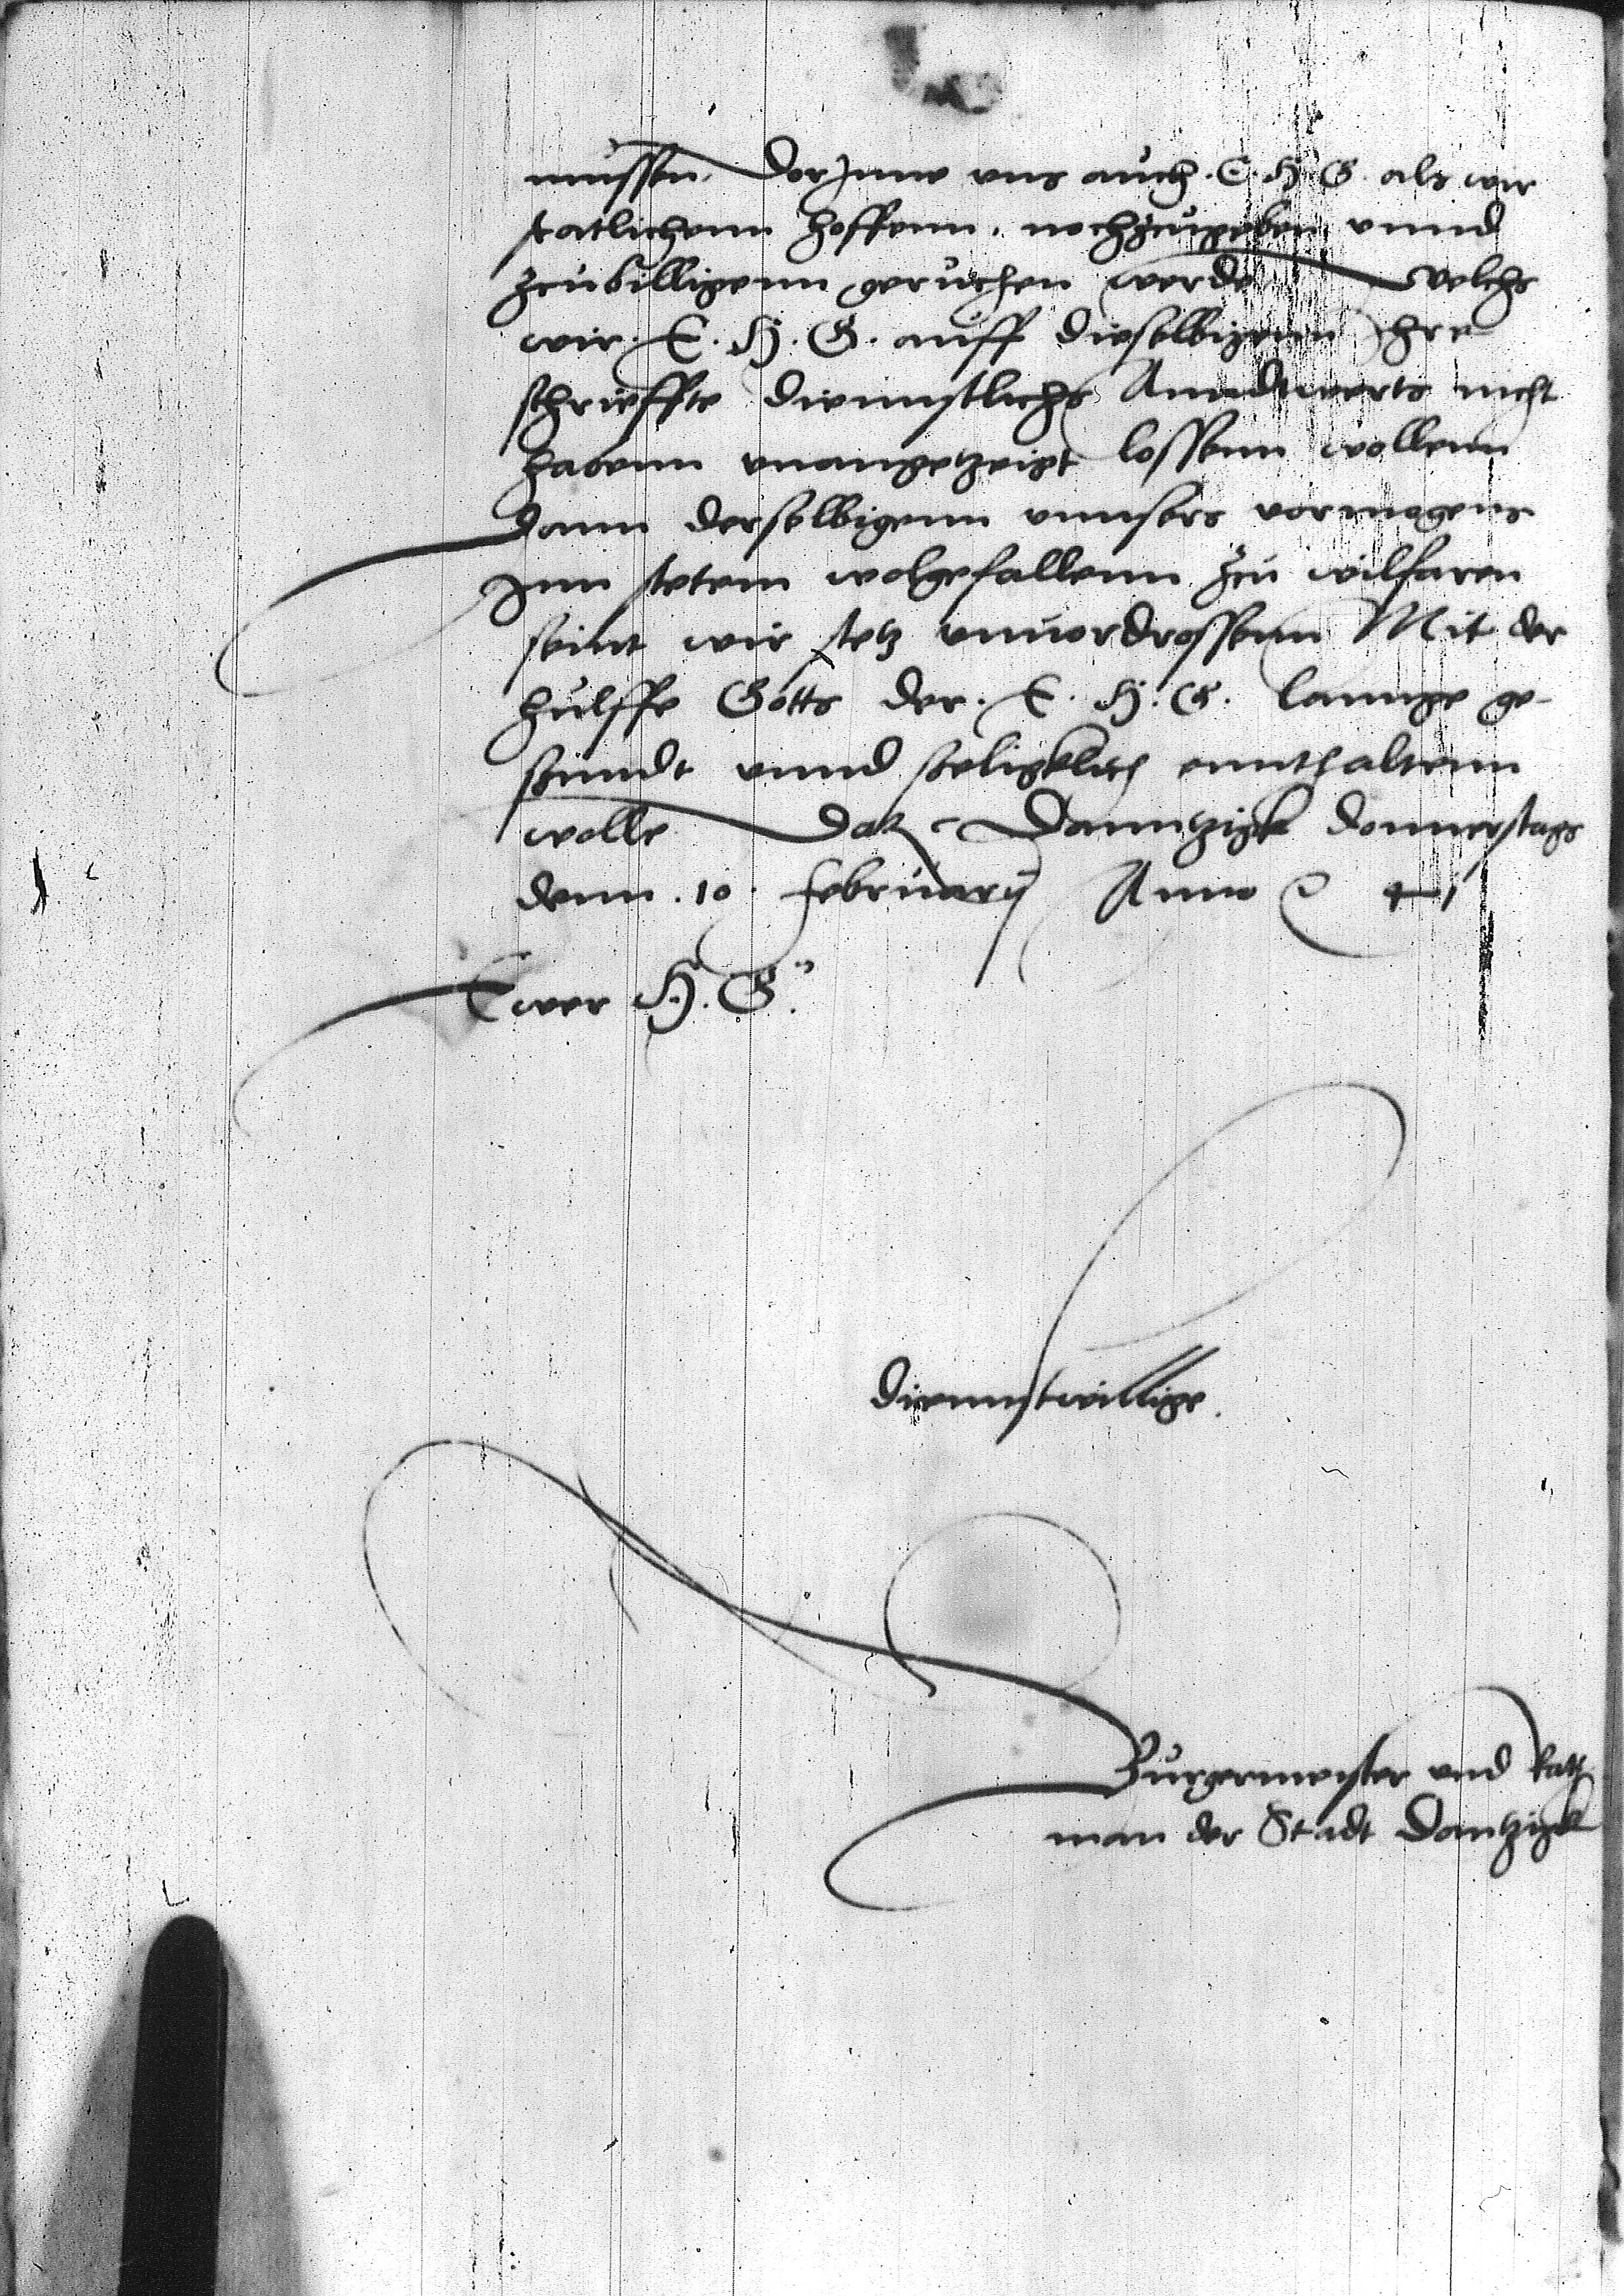 mussen. Dorjnne vns auch. E. H. G. als wir
statlichenn hoffenn. nochzugeben vnnd
zcubilligenn geruchen werde. Welchs
wir. E. H. G. auff dieselbigenn Ihre
schrieffte diennstlichs Anndtwerts nicht
habenn vnangetzeigt lossenn wollenn
Dann derselbigenn vnnsers vormogens
Inn stetem wolgefallenn zcu wilfaren
seint wir stetz vnuordrossenn Mit der
hulffe Gotts der. E. H. G. lannge ge-
sundt vnnd seligklich ennthaltenn
wolle Dat Danntzigk Donnerstags
denn .10. february Anno 41
Ewer H. G.
diennstwillige.
Burgermeister vnd Rath
man der Stadt Dantzigk